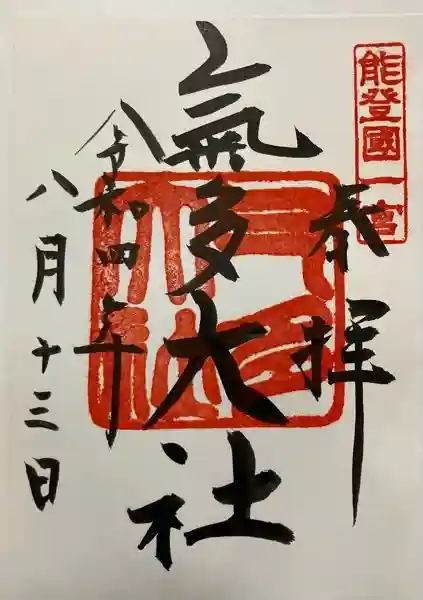 能登國一宮
奉拝
氣多大社
令和四年
八月十三日